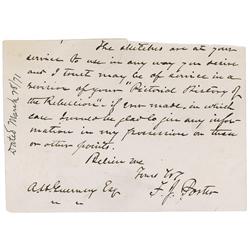 The sketches are at your
service to use in any way you desire
and I trust may be of service in a
revision of your "Pictorial History of
the Rebellion" - if ever made, in which
case I should be glad to give any infor-
mation in my possession on these
or other points.
Believe me
Yours &c
F. J. Porter
A. H. Guernsey Esq
Dated March 28/71